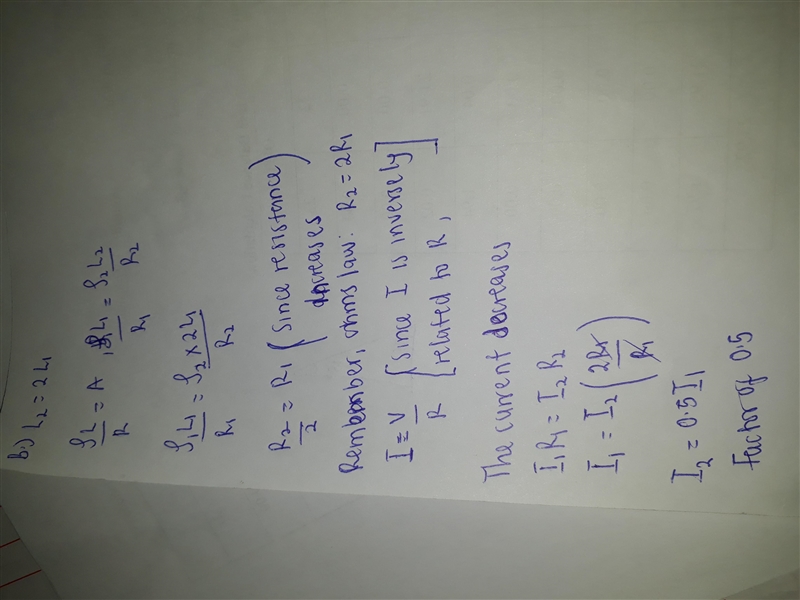 b.) L₂ = 2L₁
ρL/R = A , ρ₁L₁/R₁ = ρ₂L₂/R₂
ρ₁L₁/R₁ = ρ₂ × 2L₁/R₂
R₂/2 = R₁ (since resistance
increases)
Remember, ohms law: R₂ = 2R₁
I = V/R [since I is inversely
related to R,]
The current decreases
I₁R₁ = I₂R₂
I₁ = I₂ (2R₁/R₁)
I₂ = 0.5I₁
Factor of 0.5